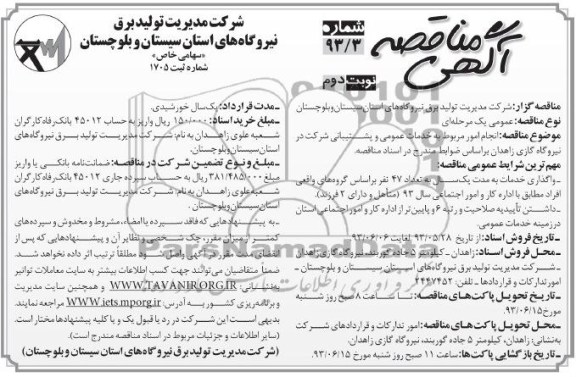 شرکت مدیریت تولید برق
نیروگاه‌های استان سیستان و بلوچستان
«سهامی خاص»
شماره ثبت ۱۷۰۵
آگهی مناقصه
شماره
۹۳/۳
نوبت دوم
مناقصه گزار: شرکت مدیریت تولید برق نیروگاه‌های استان سیستان وبلوچستان
نوع مناقصه: عمومی یک مرحله‌ای
موضوع مناقصه: انجام امور مربوط به خدمات عمومی و پشتیبانی شرکت در
نیروگاه گازی زاهدان براساس ضوابط مندرج در اسناد مناقصه.
مهم ترین شرایط عمومی مناقصه:
ـ واگذاری خدمات به مدت یک‌سال به تعداد ۴۷ نفر براساس گروه‌های واقعی
افراد مطابق با اداره کار و امور اجتماعی سال ۹۳ (متأهل و دارای ۲ فرزند).
ـ داشتن تأییدیه صلاحیت و رتبه ۶ و پایین تر از اداره کار و امور اجتماعی استان
درزمینه خدمات عمومی.
ـ تاریخ فروش اسناد: از تاریخ ۹۳/۰۵/۲۸ لغایت ۹۳/۰۶/۰۶
ـ محل فروش اسناد: زاهدان ـ کیلومتر ۵ جاده گوربند، نیروگاه گازی زاهدان
ـ شرکت مدیریت تولید برق نیروگاه‌های استان سیستان و بلوچستان ـ
امور تدارکات و قراردادها ـ تلفن: ۲۴۴۷۴۵۲
ـ تاریخ تحویل پاکت‌های مناقصه: تا ساعت ۸ صبح روز شنبه
مورخ ۹۳/۰۶/۱۵
ـ محل تحویل پاکت‌های مناقصه: امور تدارکات و قراردادهای شرکت
به‌نشانی: زاهدان، کیلومتر ۵ جاده گوربند، نیروگاه گازی زاهدان.
ـ تاریخ بازگشایی پاکت‌ها: ساعت ۱۱ صبح روز شنبه مورخ ۹۳/۰۶/۱۵.
ـ مدت قرارداد: یک‌سال خورشیدی.
ـ مبلغ خرید اسناد: ۱۵۰/۰۰۰ ریال واریز به حساب ۴۵۰۱۲ بانک رفاه کارگران
شعبه علوی زاهدان به نام: شرکت مدیریت تولید برق نیروگاه‌های
استان سیستان وبلوچستان.
ـ مبلغ و نوع تضمین شرکت در مناقصه: ضمانت‌نامه بانکی یا واریز
۳۸۱/۴۸۵/۰۰۰ ریال به حساب سپرده جاری ۴۵۰۱۲ بانک رفاه کارگران
شعبه علوی زاهدان به نام: شرکت مدیریت تولید برق نیروگاه‌های
استان سیستان وبلوچستان.
ـ به پیشنهادهایی که فاقد سپرده یا امضاء، مشروط و مخدوش و سپرده‌های
کمتر از میزان مقرر، چک شخصی و نظایر آن و پیشنهادهایی که پس از
انقضای مدت مقرر در آگهی واصل شود مطلقاً ترتیب اثر داده نخواهد شد.
ضمناً متقاضیان می‌توانند جهت کسب اطلاعات بیشتر به سایت معاملات توانیر
به‌نشانی: WWW.TAVANIR.ORG.IR و همچنین سایت مدیریت
و برنامه‌ریزی کشور به آدرس www.iets.mporg.ir مراجعه نمایند.
بدیهی است این شرکت در رد یا قبول یک و یا کلیه پیشنهادها مختار است.
(سایر اطلاعات و جزئیات مربوط در اسناد مناقصه مندرج است).
(شرکت مدیریت تولید برق نیروگاه‌های استان سیستان و بلوچستان)